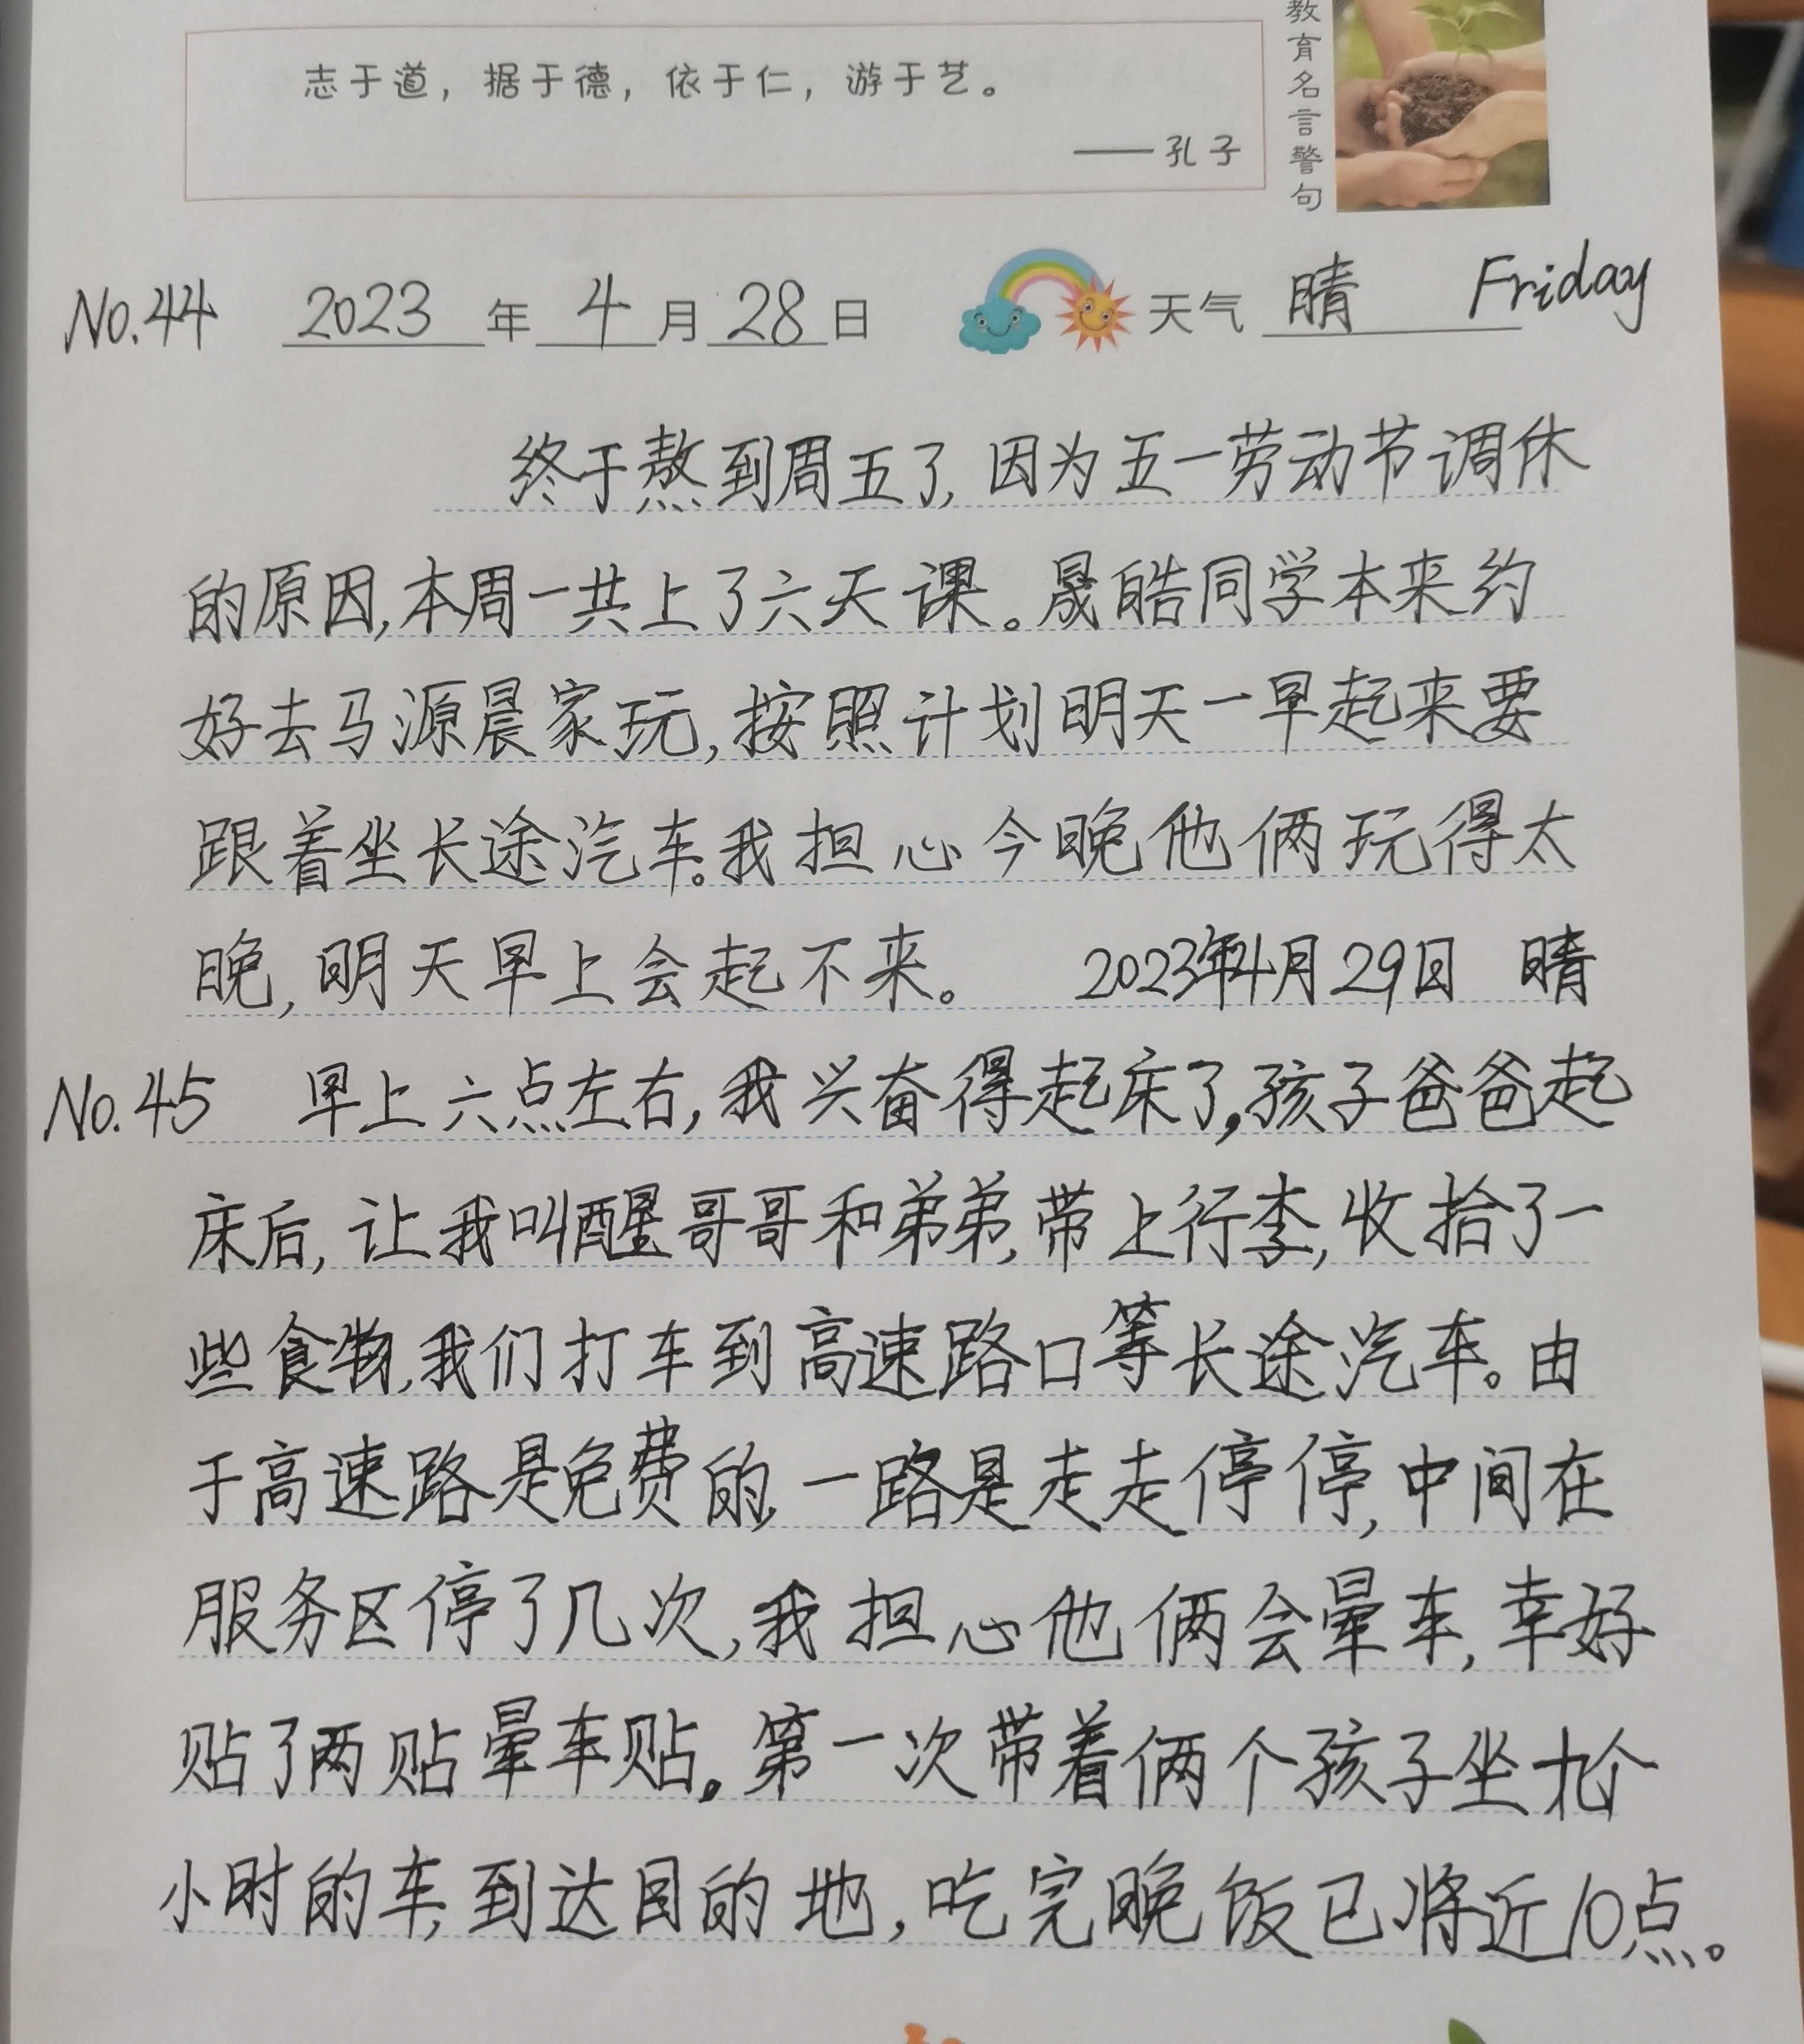 志于道，据于德，依于仁，游于艺。
——孔子
教育名言警句
No.44 2023 年 4 月 28 日 天气 晴 Friday
终于熬到周五了，因为五一劳动节调休
的原因，本周一共上了六天课。晟皓同学本来约
好去马源晨家玩，按照计划明天一早起来要
跟着坐长途汽车。我担心今晚他俩玩得太
晚，明天早上会起不来。 2023年4月29日 晴
No.45 早上六点左右，我兴奋得起床了，孩子爸爸起
床后，让我叫醒哥哥和弟弟，带上行李，收拾了一
些食物，我们打车到高速路口等长途汽车。由
于高速路是免费的，一路是走走停停，中间在
服务区停了几次，我担心他俩会晕车，幸好
贴了两贴晕车贴。第一次带着俩个孩子坐九个
小时的车，到达目的地，吃完晚饭已将近10点。